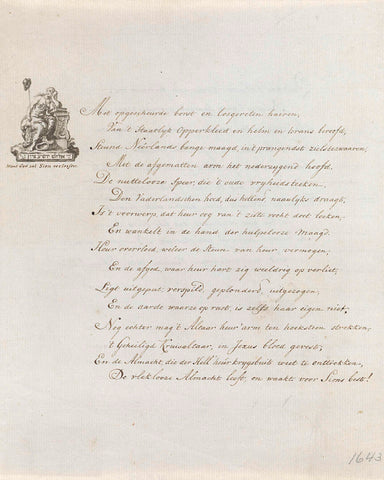 Met opgescheurde borst en losgereten hairen,
Van 't Staatlijk Opperkleed en helm en krans beroofd,
Stund Neêrlands bange maagd, in 't prangendst zielsbezwaaren,
Met de afgematten arm het nederzijgend hoofd.
De nuttelooze Speer, die 't oude vryheidsteeken,
Den Vaderlandschen hoed, dus hellend naauwlijks draagt,
Is 't voorwerp, dat heur oog van 't zilte vocht doet leeken,
En wankelt in de hand der hulpelooze Maagd.
Heur overvloed, weleer de Steun van heur vermogen,
En de afgod, waar heur hart zig weeldrig op verliet,
Ligt uitgeput, verspild, geplonderd, uitgezogen,
En de aarde waarze op rust, is zelfs haar eigen niet;
Nog echter mag 't Altaar heur arm ten hoeksteen strekken,
't Geheiligd Kruisaltaar, in Jezus bloed gevest;
En de Almacht, die der Hell' heur krygsbuit weet te onttrekken,
De vlekkelooze Almacht leeft, en waakt voor Sions best!
Want God zal Sion verlossen.
1643